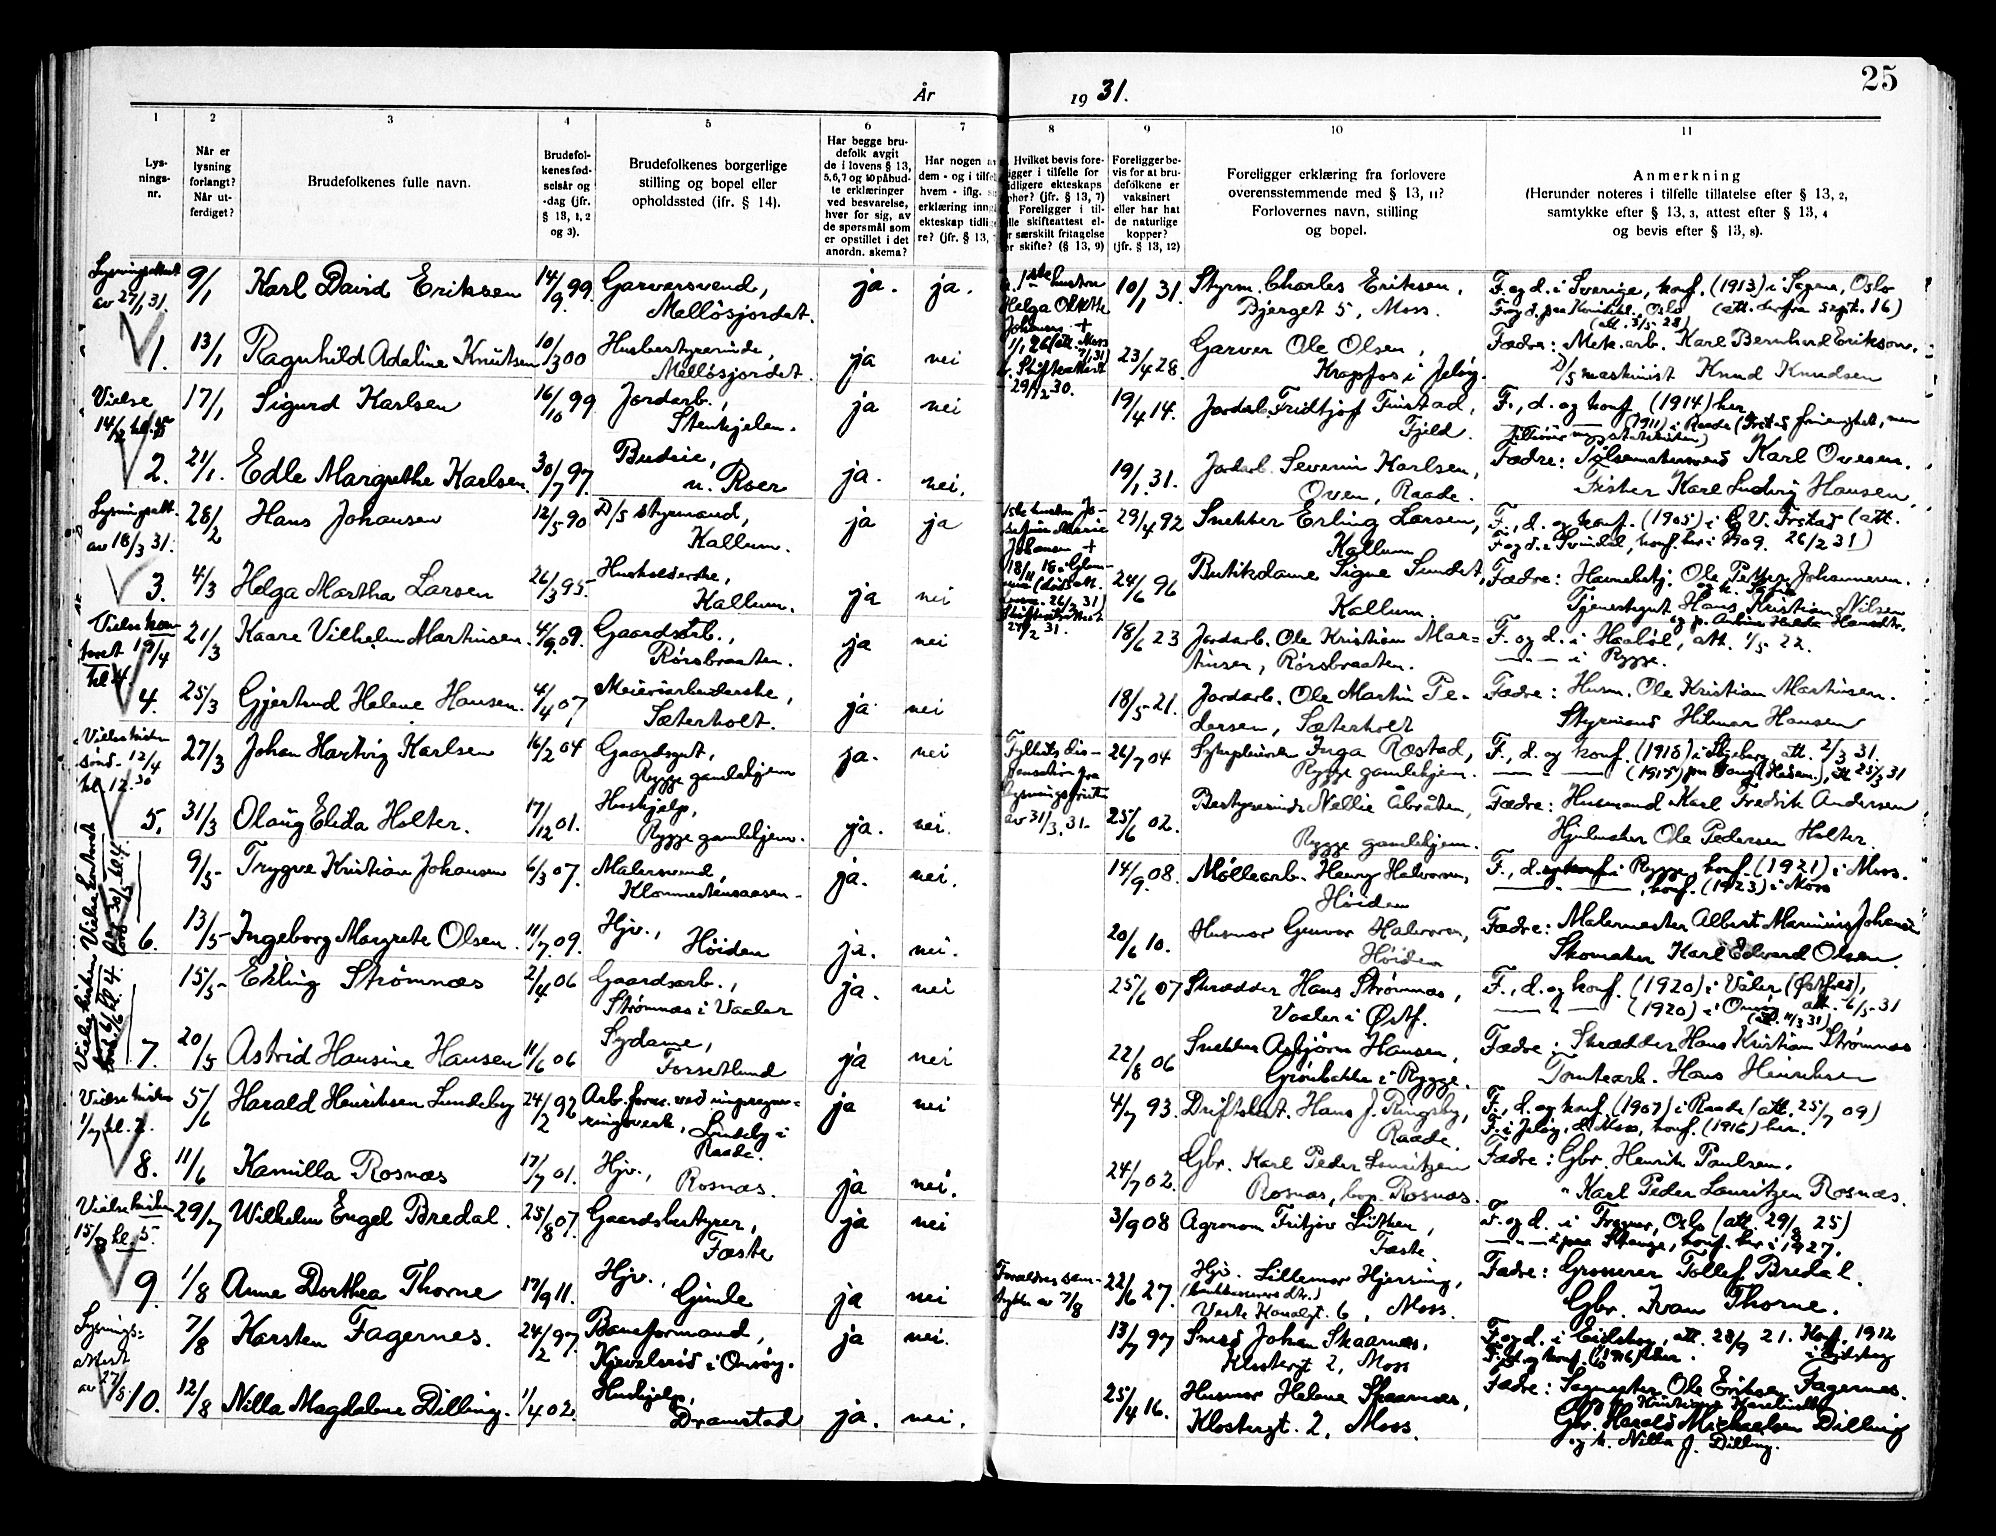 25
År 1931.
1 2 3 4 5 6 7 8 9 10 11
Lys-
nings-
nr.
Når er
lysning
forlangt?
Når ut-
ferdiget?
Brudefolkenes fulle navn.
Brudefol-
kenes fød-
selsår og
-dag (jfr.
§ 13, 1, 2
og 3).
Brudefolkenes borgerlige
stilling og bopel eller
opholdssted (ifr. § 14).
Har begge bru-
defolk avgit
de i lovens § 13,
5, 6, 7 og 10 påbud-
te erklæringer
ved besvarelse,
hver for sig, av
de spørsmål som
er opstillet i det
anordn. skema?
Har nogen av
dem - og i tilfel
hvem - iflg. s
erklæring inng
ekteskap tidlig
re? (jfr. § 13,
Hvilket bevis fore-
igger i tilfelle for
idligere ekteskaps
phør? (jfr. § 13, 7)
Foreligger i til-
lle skifteattest el-
r særskilt fritagelse
r skifte? (§ 13, 9)
Foreligger be-
vis for at bru-
defolkene er
vaksinert
eller har hat
de naturlige
kopper?
(jfr. § 13, 12)
Foreligger erklæring fra forlovere
overensstemmende med § 13, 11?
Forlovernes navn, stilling
og bopel.
Anmerkning
(Herunder noteres i tilfelle tillatelse efter § 13, 2,
samtykke efter § 13, 3, attest efter § 13, 4
og bevis efter § 13, 8).
Lysningsattest
av 27/1 31.
9/1 Karl David Eriksen 14/9 99. Garversvend,
Melløsjordet. ja. ja.
1ste hustru
Helga
Johansen +
1/1 26 (att. Moss
7/1 31)
Skifteattest
29/12 30.
10/1 31. Styrm. Charles Eriksen,
Bjerget 5, Moss.
F. og d. i Sverige, konf. (1913) i Sagene, Oslo
(att. derfra Sept. 16)
1. 13/1 Ragnhild Adeline Knutsen 10/3 00 Husbestyrerinde,
Melløsjordet. ja nei
23/4 28. Garver Ole Olsen,
Krapfos i Jeløy.
Fædre: Mek. arb. Karl Bernhard Erikson.
D/S maskinist Knud Knudsen
Vielse
14/2 kl. 5
17/1 Sigurd Karlsen 16/10 99 Jordarb.,
Stenkjelen. ja nei
19/4 14. Jordarb. Fridtjof Finstad,
Fjeld.
F., d. og konf. (1914) her
(1911) i Raade
2. 21/1. Edle Margrethe Karlsen. 30/7 97. Budeie,
n. Roer ja. nei.
19/1 31. Jordarb. Severin Karlsen,
Oven, Raade.
Fædre: Pølsemakersvend Karl Ovesen.
Fisker Karl Ludvig Hansen
Lysningsatt.
av 18/3 31.
28/2 Hans Johansen 12/5 90 D/S styrmand,
Kallum. ja ja
29/4 92 Snekker Erling Larsen,
Kallum
F., d. og konf. (1905) i (att.
26/2 31)
F. og d. i Svindal, konf. her i 1909.
3. 4/3 Helga Martha Larsen 26/3 95. Husholderske,
Kallum. ja nei
24/6 96 Butikdame Signe Sundet,
Kallum.
Fædre: Havnebetj. Ole Petter Johannesen.
Tjenestegut Hans Kristian Nilsen
Vielse kon-
toret 19/4
kl 4.
21/3 Kaare Vilhelm Martinsen. 4/9 09. Gaardsarb.,
Rørsbraaten. ja nei
18/6 23 Jordarb. Ole Kristian Mar-
tinsen, Rørsbraaten.
F. og d. i Haabøl, att. 1/5 22.
i Rygge.
4. 25/3 Gjertrud Helene Hansen. 4/4 07 Meieriarbeiderske,
Sæterholt. ja nei
18/5 21. Jordarb. Ole Martin Pe-
dersen, Sæterholt
Fædre: Husm. Ole Kristian Martinsen.
Styrmand Hilmar Hansen
Vielse kirken
sønd. 12/4
kl. 12.30
27/3 Johan Hartvig Karlsen 16/2 04 Gaardsgut,
Rygge gamlehjem ja. nei
Fylkets dis-
pensation fra
lysningsfristen
av 31/3 31.
26/7 04 Sykepleierske Inga Røstad,
Rygge gamlehjem.
F., d. og konf. (1918) i Skjeberg, att. 2/3 31.
5. 31/3 Olaug Elida Holter. 17/12 01. Hushjelp,
Rygge gamlehjem. ja. nei.
25/6 02. Bestyrerinde Nellie Åbråten,
Rygge gamlehjem.
Fædre: Husmand Karl Fredrik Andersen
Hjulmaker Ole Pedersen Holter.
Vielse kontoret
30/5 kl. 4.
9/5 Trygve Kristian Johansen 6/3 07. Malersvend,
Klommestensaasen. ja. nei.
14/9 08. Møllearb. Henry Halvorsen,
Høiden
F., d. i Rygge, konf. (1921) i Moss.
konf. (1923) i Moss
6. 13/5 Ingeborg Margrete Olsen. 11/7 09. Hjv.,
Høiden ja. nei.
20/6 10. Husmor Gunvor Halvorsen,
Høiden
Fædre: Malermester Albert Marinius Johansen
Skomaker Karl Edvard Olsen.
Vielse kirken
6/6 kl. 4.
15/5 Erling Strømnæs 2/4 06 Gaardsarb.,
Strømnæs i Vaaler ja. nei
25/6 07 Skrædder Hans Strømnæs,
Vaaler i Østf.
F., d. og konf. (1920) i Våler (Østfold),
att. 6/5 31
(1920) i Onsøy
(att. 11/3 31)
7. 20/5 Astrid Hansine Hansen 11/6 06 Sydame,
Forsetlund ja nei
22/8 06 Snekker Asbjørn Hansen,
Grønbakke i Rygge.
Fædre: Skrædder Hans Kristian Strømnæs
Tomtearb. Hans Henriksen
Vielse kirken
1/7 kl. 7.
5/6 Harald Henriksen Lundeby 24/2 92 Arb. form. ved impregne-
ringsverk, Lundeby i
Raade. ja nei
4/7 93. Driftsbest. Hans J. Ringsby,
Raade.
F., d. og konf. (1907) i Raade (att. 25/7 09)
F. i Jeløy, d. Moss, konf. (1916) her.
8. 11/6 Kamilla Rosnæs 17/7 01. Hjv.,
Rosnæs. ja nei.
24/7 02. Gbr. Karl Peder Lauritzen
Rosnæs, bop. Rosnæs.
Fædre: Gbr. Henrik Paulsen.
" Karl Peder Lauritzen Rosnæs.
Vielse kirken
15/8 kl. 5.
29/7 Wilhelm Engel Bredal. 25/8 07. Gaardsbestyrer,
Fæste ja nei
3/9 08 Agronom Fritjov Lütken,
Fæste.
F. og d. i Frogner, Oslo (att. 29/8 25)
paa Stange, konf. her i 1927.
9. 1/8 Anne Dorthea Thorne 17/9 11. Hjv.,
Gimle ja nei
Forældres sam-
tykke av 7/8
22/6 27. Hjv. Lillemor Hjersing,
Vestre Kanalgt. 6, Moss.
Fædre: Grosserer Tollef Bredal.
Gbr. Ivan Thorne.
Lysnings-
attest
av 27/8
7/8 Karsten Fagernes. 24/2 97 Baneformand,
Kjevelsrød i Onsøy. ja nei.
13/7 97 Smed Johan Skaarnæs,
Klostergt 2, Moss
F. og d. i Eidsberg, att. 28/9 21. Konf. 1912
i Eidsberg
F., d. og konf. (1916) her.
10. 12/8 Nilla Magdalene Dilling. 1/4 02. Hushjelp,
Dramstad ja. nei.
25/4 16. Husmor Helene Skaarnæs,
Klostergt. 2, Moss.
Fædre: Sagmester Ole Eriksen Fagernes.
Gbr. Harald Michaelsen Dilling
og h. Nilla J. Dilling.